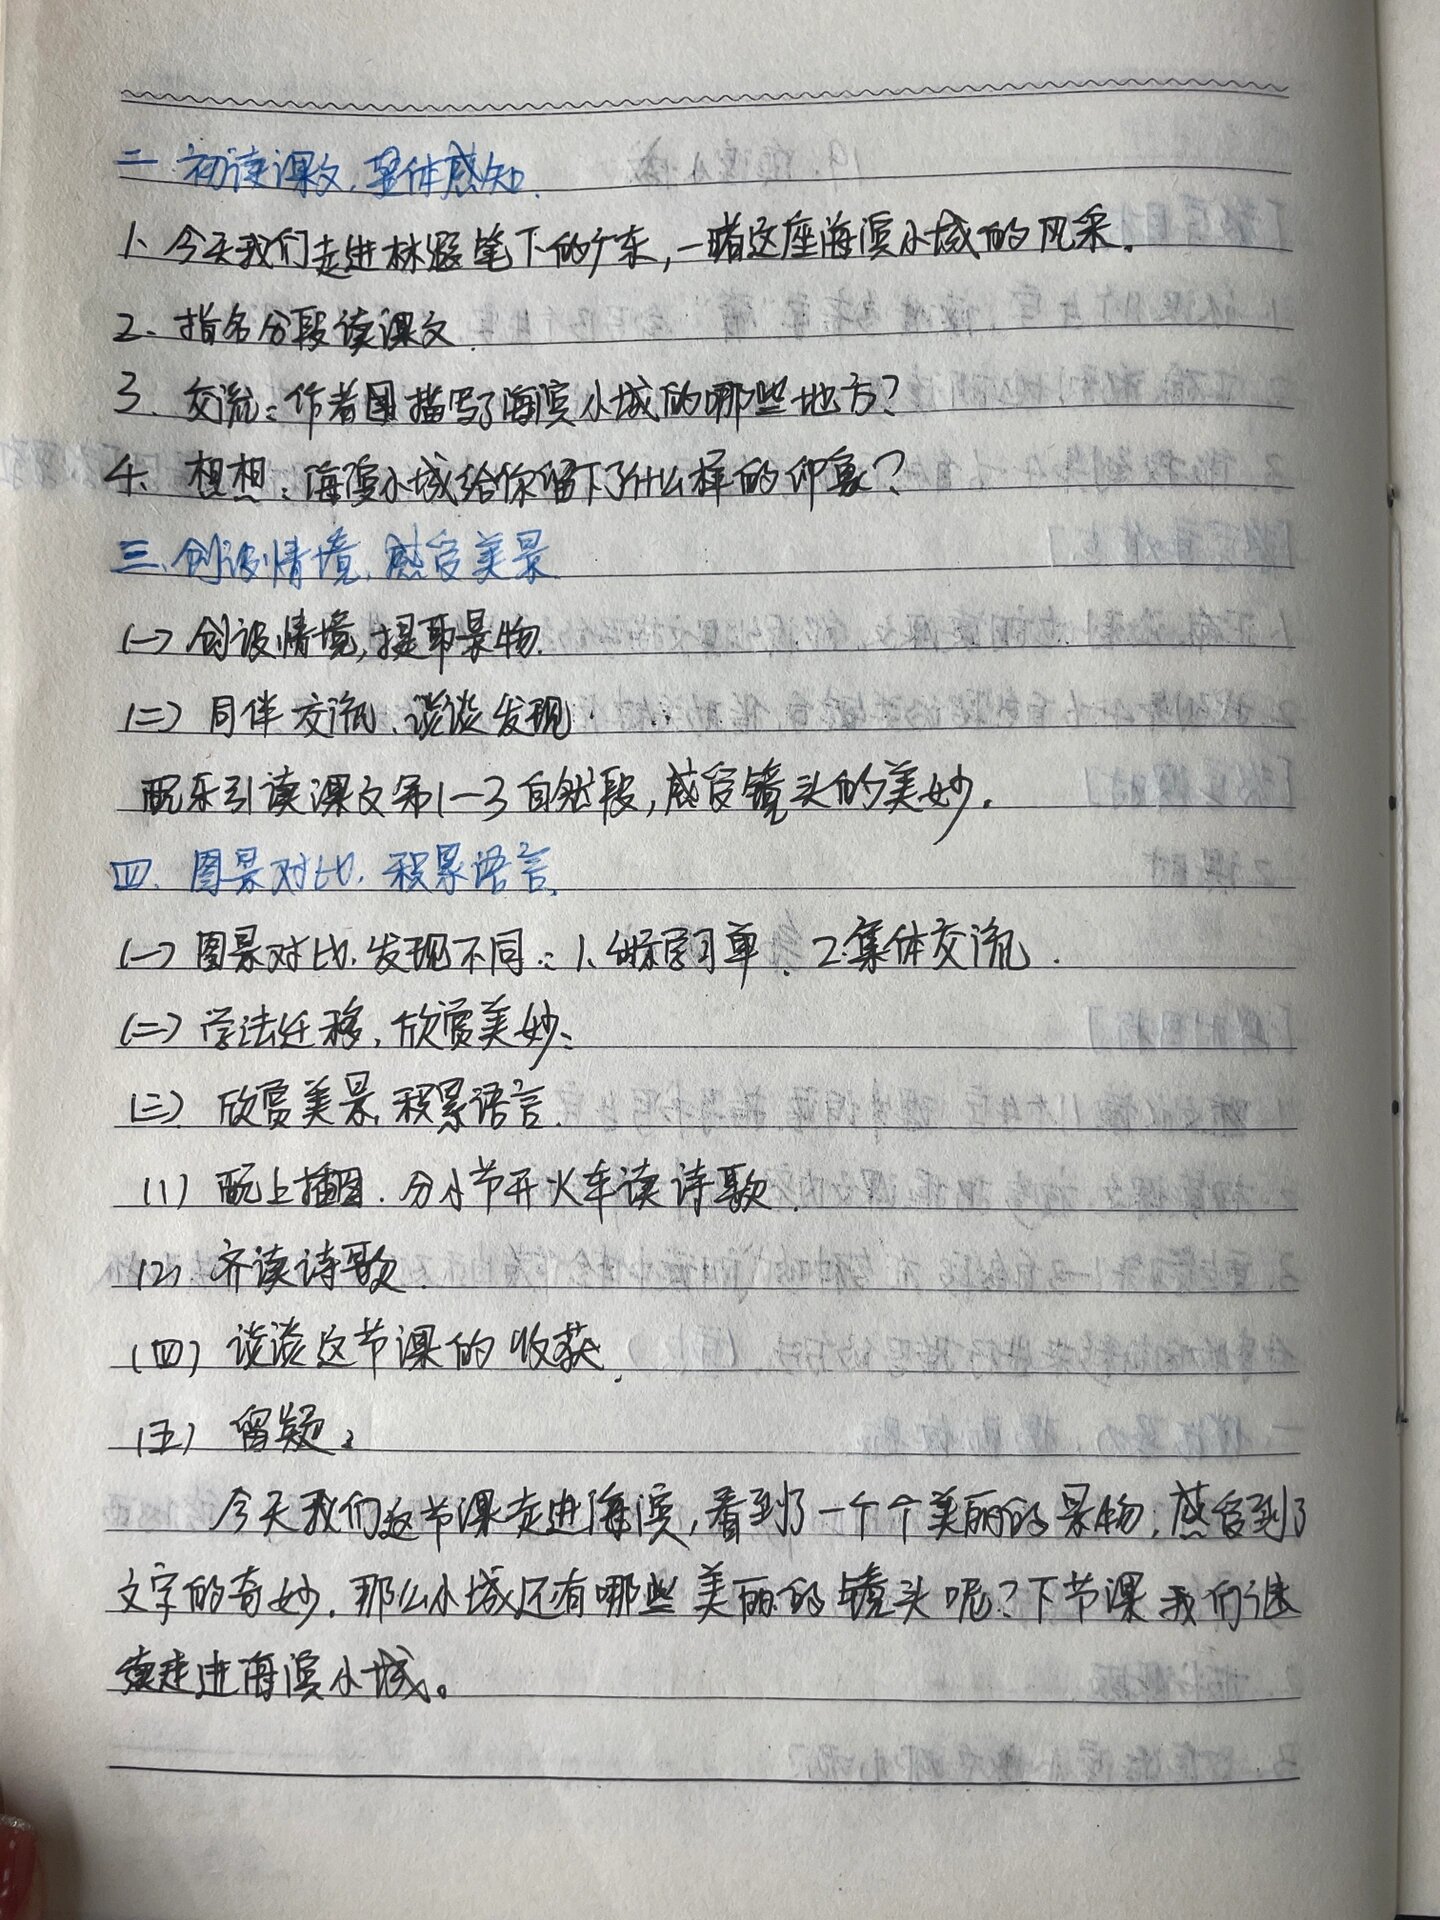 二 初读课文,整体感知.
1、今天我们走进林遐笔下的广东,一睹这座海滨小城的风采。
2. 指名分段读课文.
3. 交流:作者描写了海滨小城的哪些地方?
4. 想想:海滨小城给你留下了什么样的印象?
三.创设情境,感受美景
(一) 创设情境,提取景物.
(二) 同伴交流、谈谈发现.
配乐引读课文第1—3自然段,感受镜头的美妙.
四. 图景对比,积累语言.
(一) 图景对比,发现不同:1、学习单. 2.集体交流.
(二) 学法迁移,欣赏美妙:
(三) 欣赏美景,积累语言.
(1) 配上插图.分小节开火车读诗歌.
(2) 齐读诗歌.
(四) 谈谈这节课的收获.
(五) 留疑:
今天我们这节课走进海滨,看到了一个个美丽的景物,感受到了
文字的奇妙.那么小城还有哪些美丽的镜头呢?下节课我们继
续走进海滨小城。